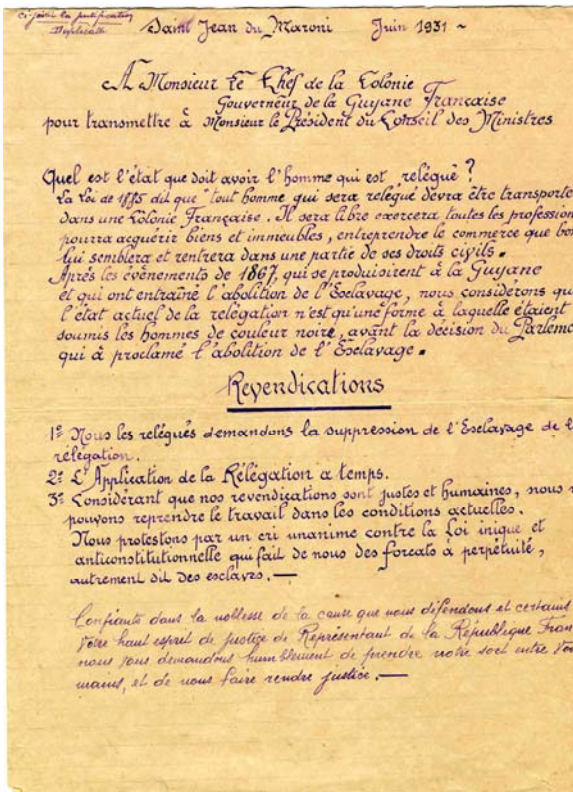 ci-joint la justification
Duplicata
Saint Jean du Maroni Juin 1931 ~
A Monsieur Le Chef de la Colonie
Gouverneur de la Guyane Française
pour transmettre à Monsieur le Président du Conseil des Ministres
Quel est l'état que doit avoir l'homme qui est relégué ?
La Loi de 1885 dit que "tout homme qui sera relégué devra être transporté
dans une Colonie Française. Il sera libre exercera toutes les profession
pourra acquérir biens et immeubles, entreprendre le commerce que bon
lui semblera et rentrera dans une partie de ses droits civils.
Après les évènements de 1867, qui se produisirent à la Guyane
et qui ont entraîné l'abolition de l'Esclavage, nous considérons qu
l'état actuel de la relégation n'est qu'une forme à laquelle étaient
soumis les hommes de couleur noire, avant la décision du Parleme
qui à proclamé l'abolition de l'Esclavage.
Revendications
1º Nous les relégués demandons la suppression de l'Esclavage de l
rélégation.
2º L'Application de la Rélégation a temps.
3º Considérant que nos revendications sont justes et humaines, nous n
pouvons reprendre le travail dans les conditions actuelles.
Nous protestons par un cri unanime contre la Loi inique et
anticonstitutionnelle qui fait de nous des forcats à perpétuité,
autrement dit des esclaves. —
Confiants dans la noblesse de la cause que nous défendons et certains
Votre haut esprit de justice de Représentant de la République Fran
nous vous demandons humblement de prendre notre sort entre Vo
mains, et de nous faire rendre justice. —